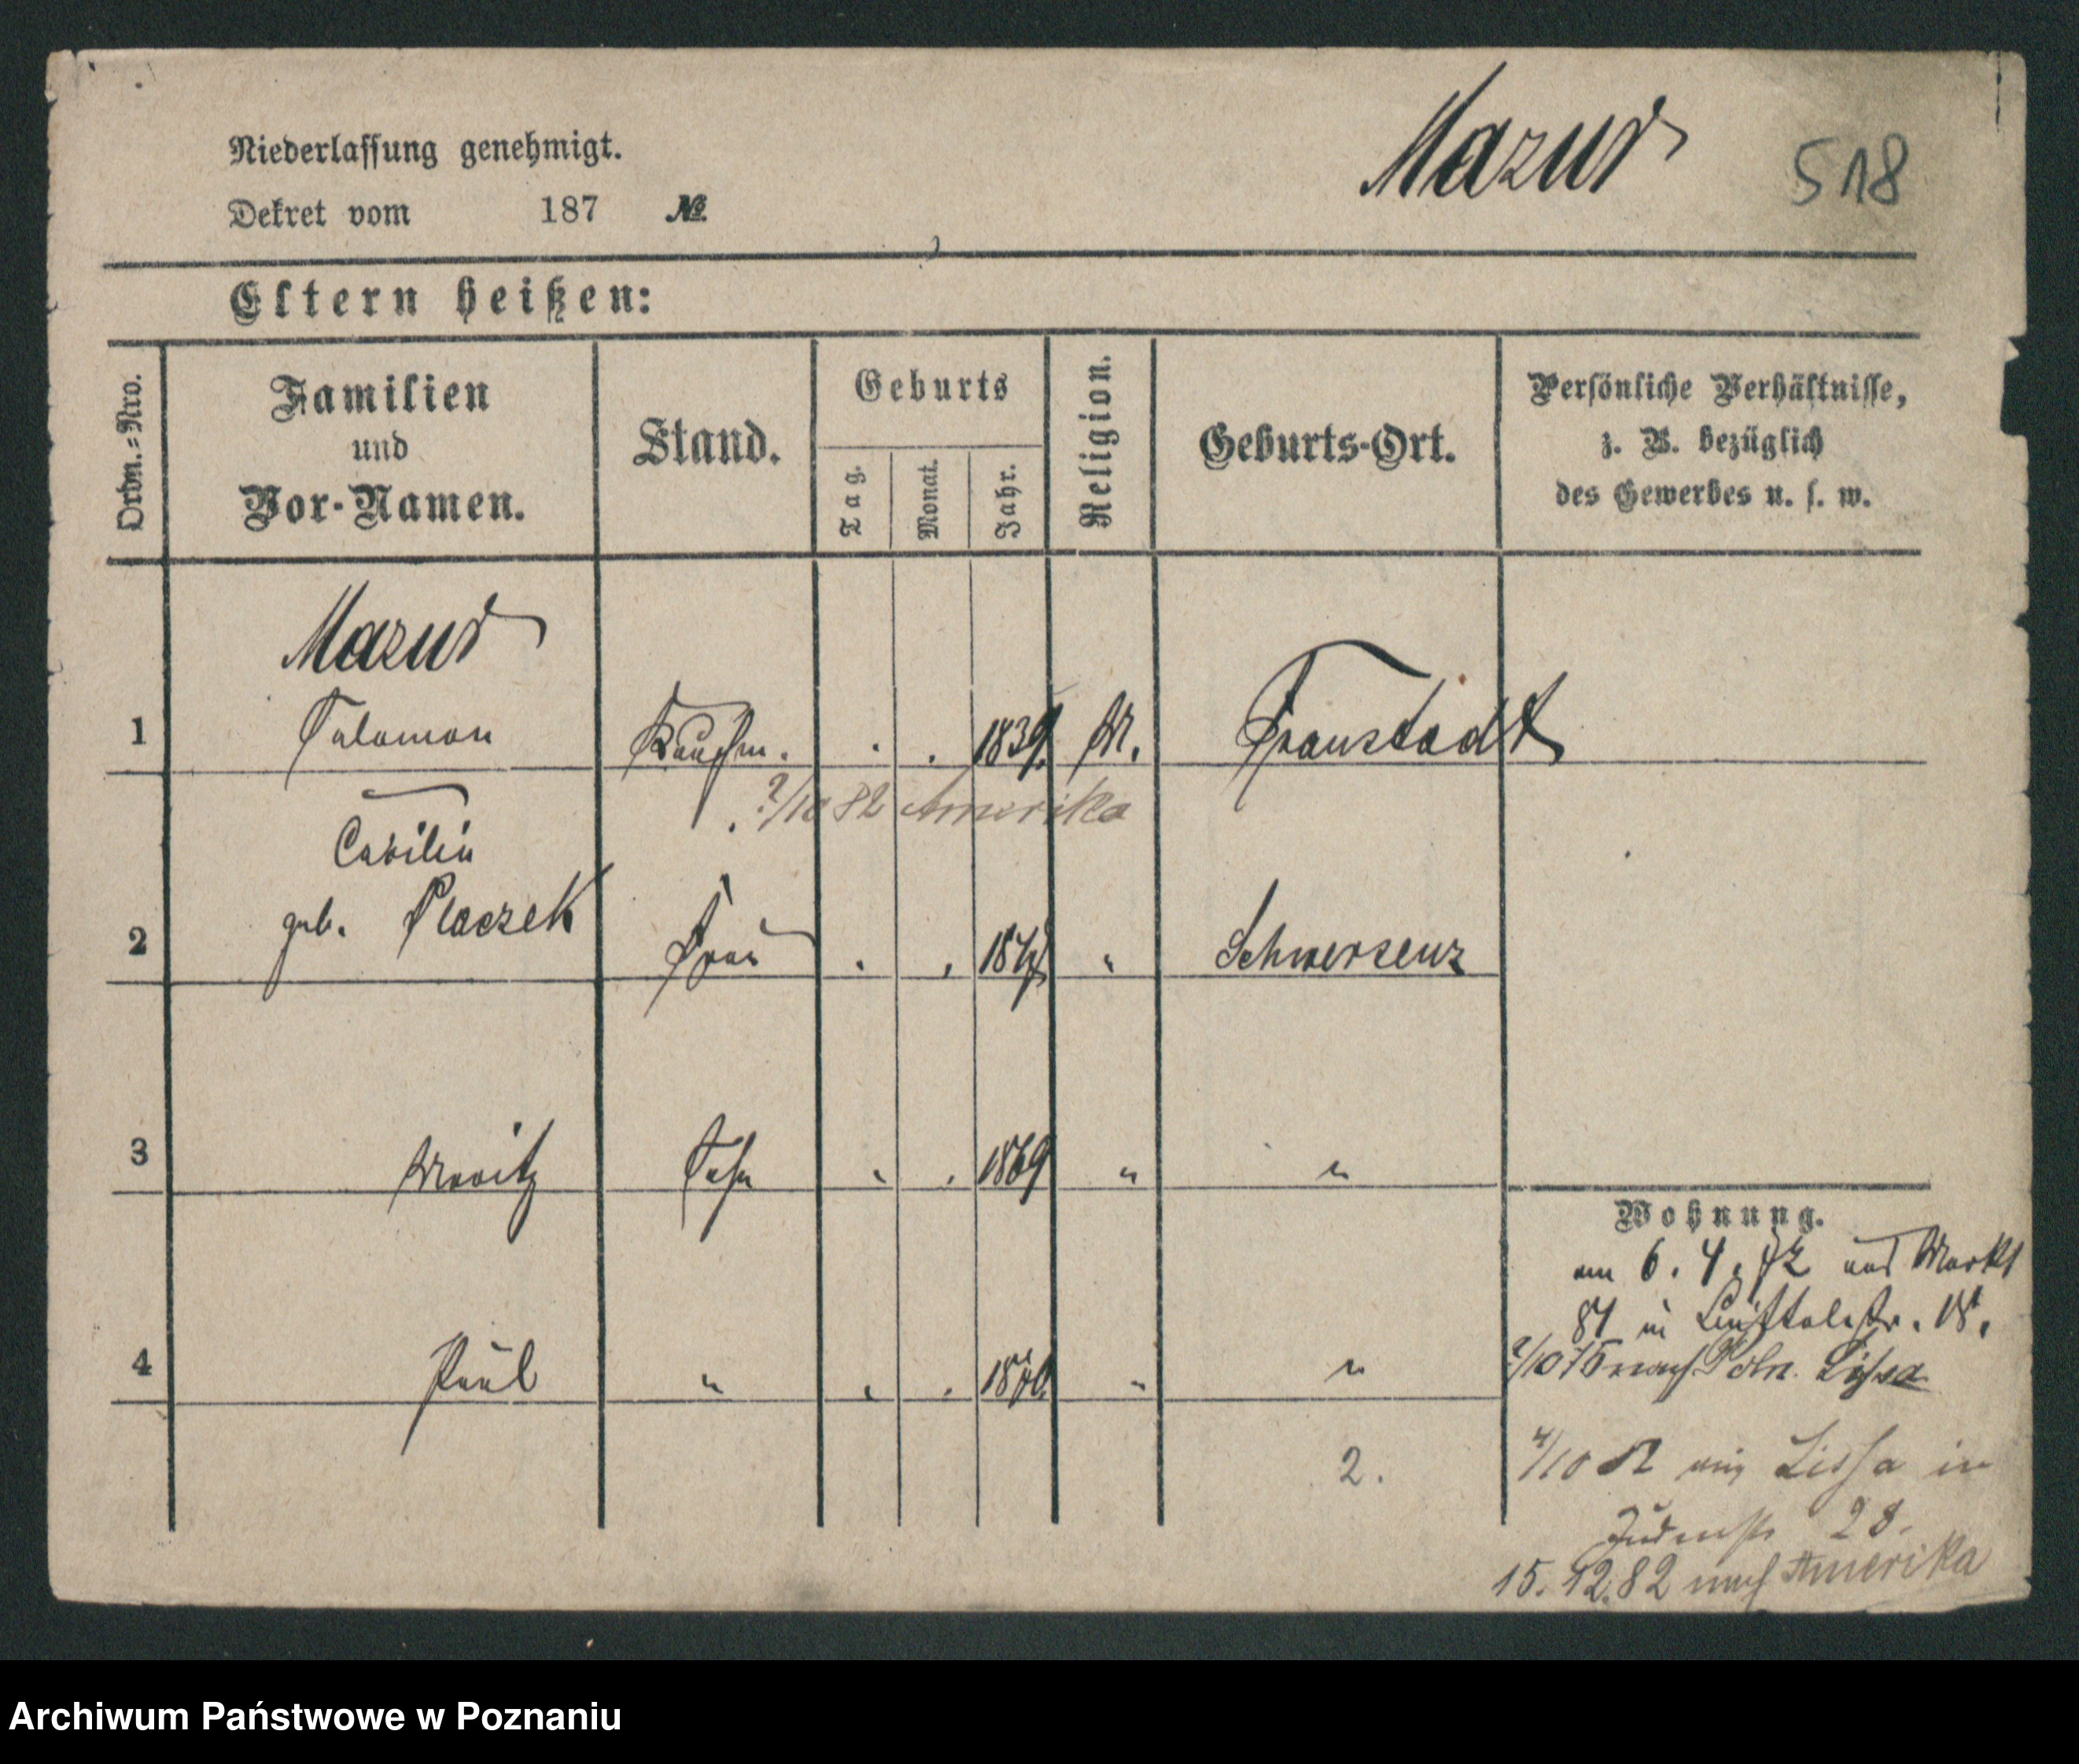 Niederlassung genehmigt.
Mazur
518
Dekret vom 187 №
Eltern heißen:
Ordn.=Nro.
Familien
und
Vor-Namen.
Stand.
Geburts
Tag.
Monat.
Jahr.
Religion.
Geburts-Ort.
Persönliche Verhältnisse,
z. B. bezüglich
des Gewerbes u. s. w.
Mazur
1 Salomon Kaufm. 1839. M. Fraustadt
?/10 82 Amerika
Cäcilie
geb. Placzek
2 Frau " Schwersenz
3 Moritz Sohn 1869 " "
Wohnung.
am 6. 4. 72 aus Markt
81 in 18.
4 Paul " " "
?/10 75 nach Poln. Lissa
2.
4/10 aus Lissa in
Judenstr 28.
15. 12. 82 nach Amerika
Archiwum Państwowe w Poznaniu